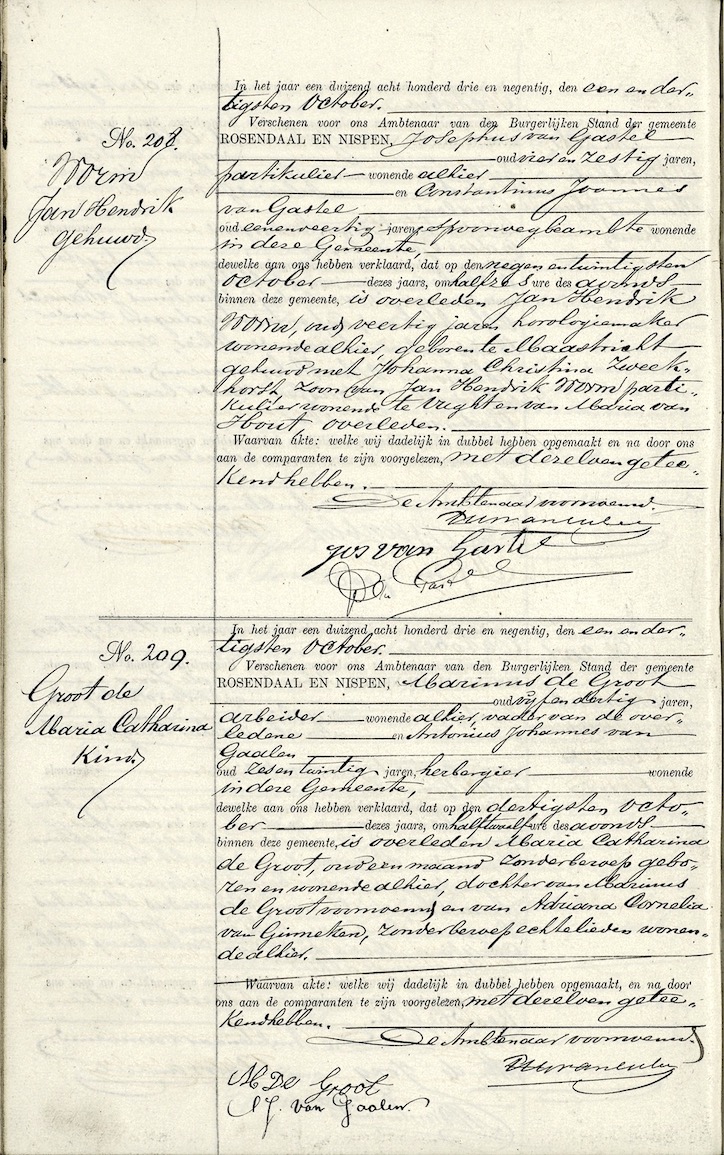 No. 208.
Worm
Jan Hendrik
gehuwd
In het jaar een duizend acht honderd drie en negentig, den een en der„
tigsten October.
Verschenen voor ons Ambtenaar van den Burgerlijken Stand der gemeente
ROSENDAAL EN NISPEN, Josephus van Gastel
oud vier en zestig jaren,
partikulier wonende alhier
en Constantinus Joannes
van Gastel
oud een en veertig jaren, spoorwegbeambte wonende
in deze Gemeente,
dewelke aan ons hebben verklaard, dat op den negen en twintigsten
October dezes jaars, om half zes ure des avonds
binnen deze gemeente, is overleden Jan Hendrik
Worm, oud veertig jaren horologiemaker
wonende alhier, geboren te Maastricht
gehuwd met Johanna Christina Zweek„
horst, zoon van Jan Hendrik Worm parti„
kulier wonende te Vught en van Maria van
Hout, overleden.
Waarvan akte: welke wij dadelijk in dubbel hebben opgemaakt en na door ons
aan de comparanten te zijn voorgelezen, met dezelven getee„
kend hebben.
De Ambtenaar voornoemd.
Jos van Gastel
No. 209.
Groot de
Maria Catharina
Kind
In het jaar een duizend acht honderd drie en negentig, den een en der„
tigsten October.
Verschenen voor ons Ambtenaar van den Burgerlijken Stand der gemeente
ROSENDAAL EN NISPEN, Marinus de Groot
oud vijf en dertig jaren,
arbeider wonende alhier, vader van de over„
ledene en Antonius Johannes van
Gaalen
oud zes en twintig jaren, herbergier wonende
in deze Gemeente,
dewelke aan ons hebben verklaard, dat op den dertigsten Octo„
ber dezes jaars, om half twaalf ure des avonds
binnen deze gemeente, is overleden Maria Catharina
de Groot, oud een maand zonder beroep gebo„
ren en wonende alhier, dochter van Marinus
de Groot voornoemd en van Adriana Cornelia
van Ginneken, zonder beroep echtelieden wonen„
de alhier.
Waarvan akte: welke wij dadelijk in dubbel hebben opgemaakt, en na door
ons aan de comparanten te zijn voorgelezen, met dezelven getee„
kend hebben.
De Ambtenaar voornoemd.
M De Groot
A J. van Gaalen.